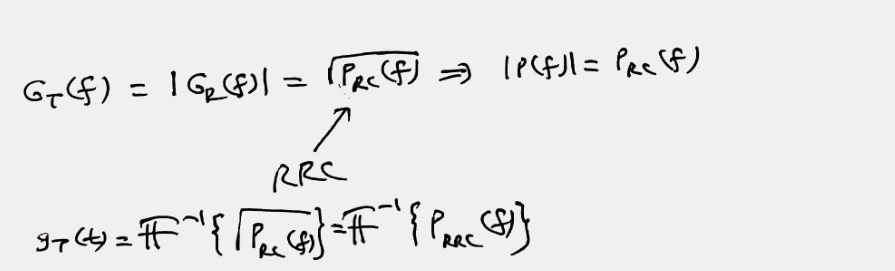 G_T(f) = |G_R(f)| = √P_RC(f) ⇒ |P(f)| = P_RC(f)
RRC
g_T(t) = F⁻¹{√P_RC(f)} = F⁻¹{P_RRC(f)}